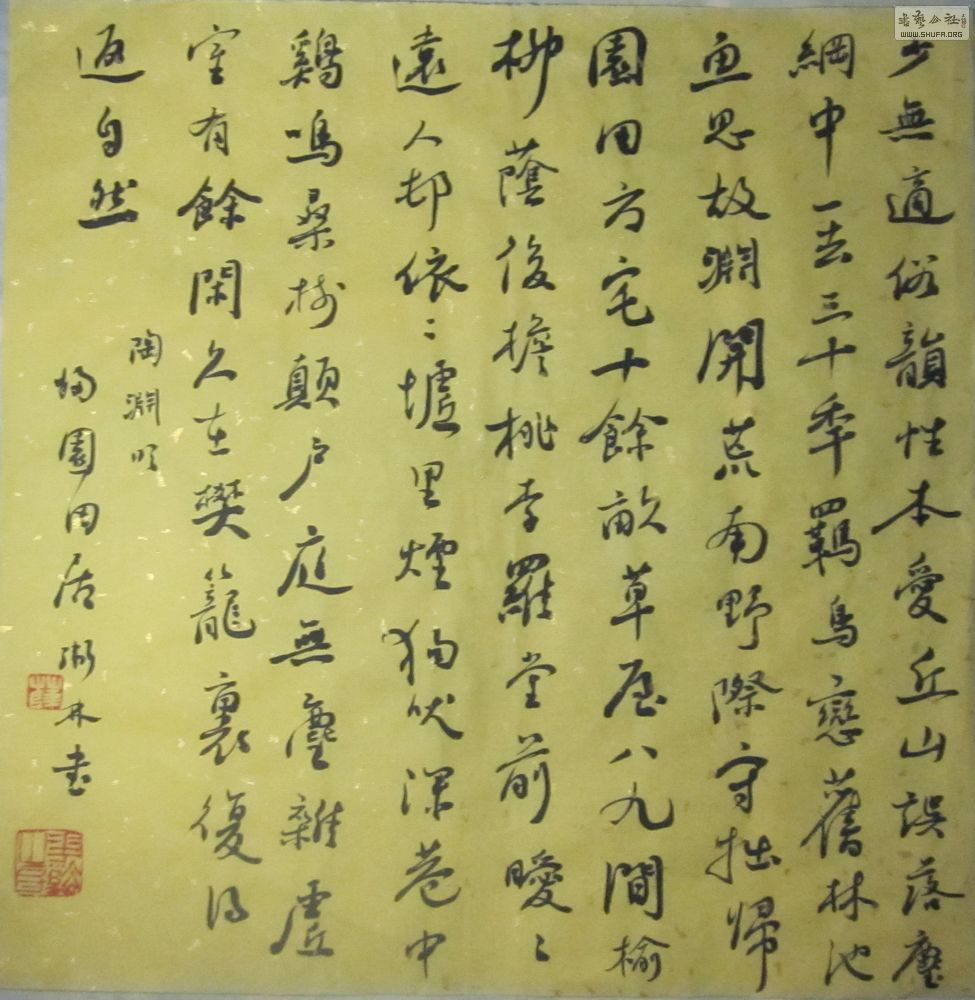 少無適俗韻性本愛丘山誤落塵
網中一去三十季羈鳥戀舊林池
魚思故淵開荒南野際守拙歸
園田方宅十餘畝草屋八九間榆
柳蔭後檐桃李羅堂前曖曖〻
遠人邨依〻墟里煙狗吠深巷中
鷄鳴桑樹顛户庭無塵雜虛
室有餘閑久在樊籠裏復得
返自然
陶淵明
歸園田居 書
書藝公社
WWW.SHUFA.ORG